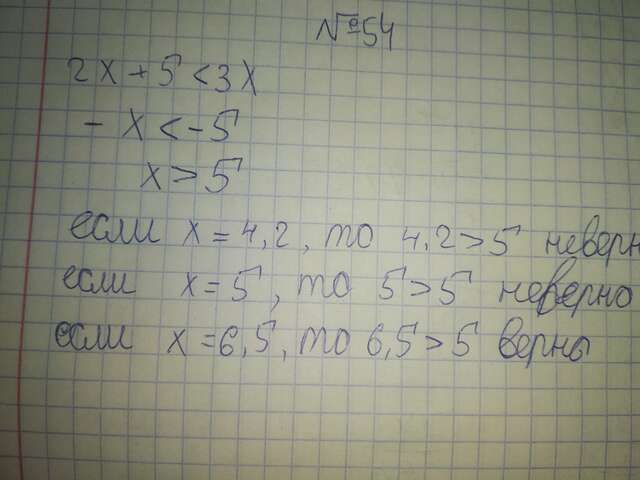 №54
2x + 5 < 3x
- x < -5
x > 5
если x = 4,2, то 4,2 > 5 неверн
если x = 5, то 5 > 5 неверно
если x = 6,5, то 6,5 > 5 верны